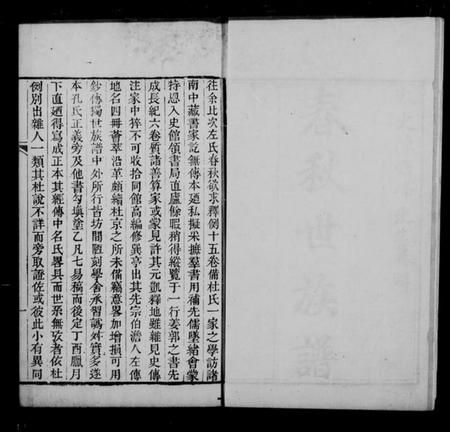 往余比次左氏春秋欲求釋例十五卷備杜氏一家之學訪諸
南中藏書家訖無傳本迺私擬采摭羣書用補先儒墜緒會蒙
持恩入史館領書局直廬餘暇稍得縱覽于一行姜郭之書先
成長紀六卷質諸善算家或蒙見許其元凱釋地雖雜見史傳
注家中猝不可收拾同館高編修巽亭出其先宗伯澹人左傳
地名四冊薈萃沿革頗緒杜京之所未備竊意略加增損可用
鈔傳獨世族譜中外所行皆坊間戲刻學舍承習譌舛實多遂
本孔氏正義旁及他書勾填塗乙凡七易稿而後定丁酉臘月
下直迺得寫成正本其經傳中名氏畧具而世系無攷者依杜
例別出雜人一類其杜說不詳而旁取證佐或彼此小有異同
春秋世族譜